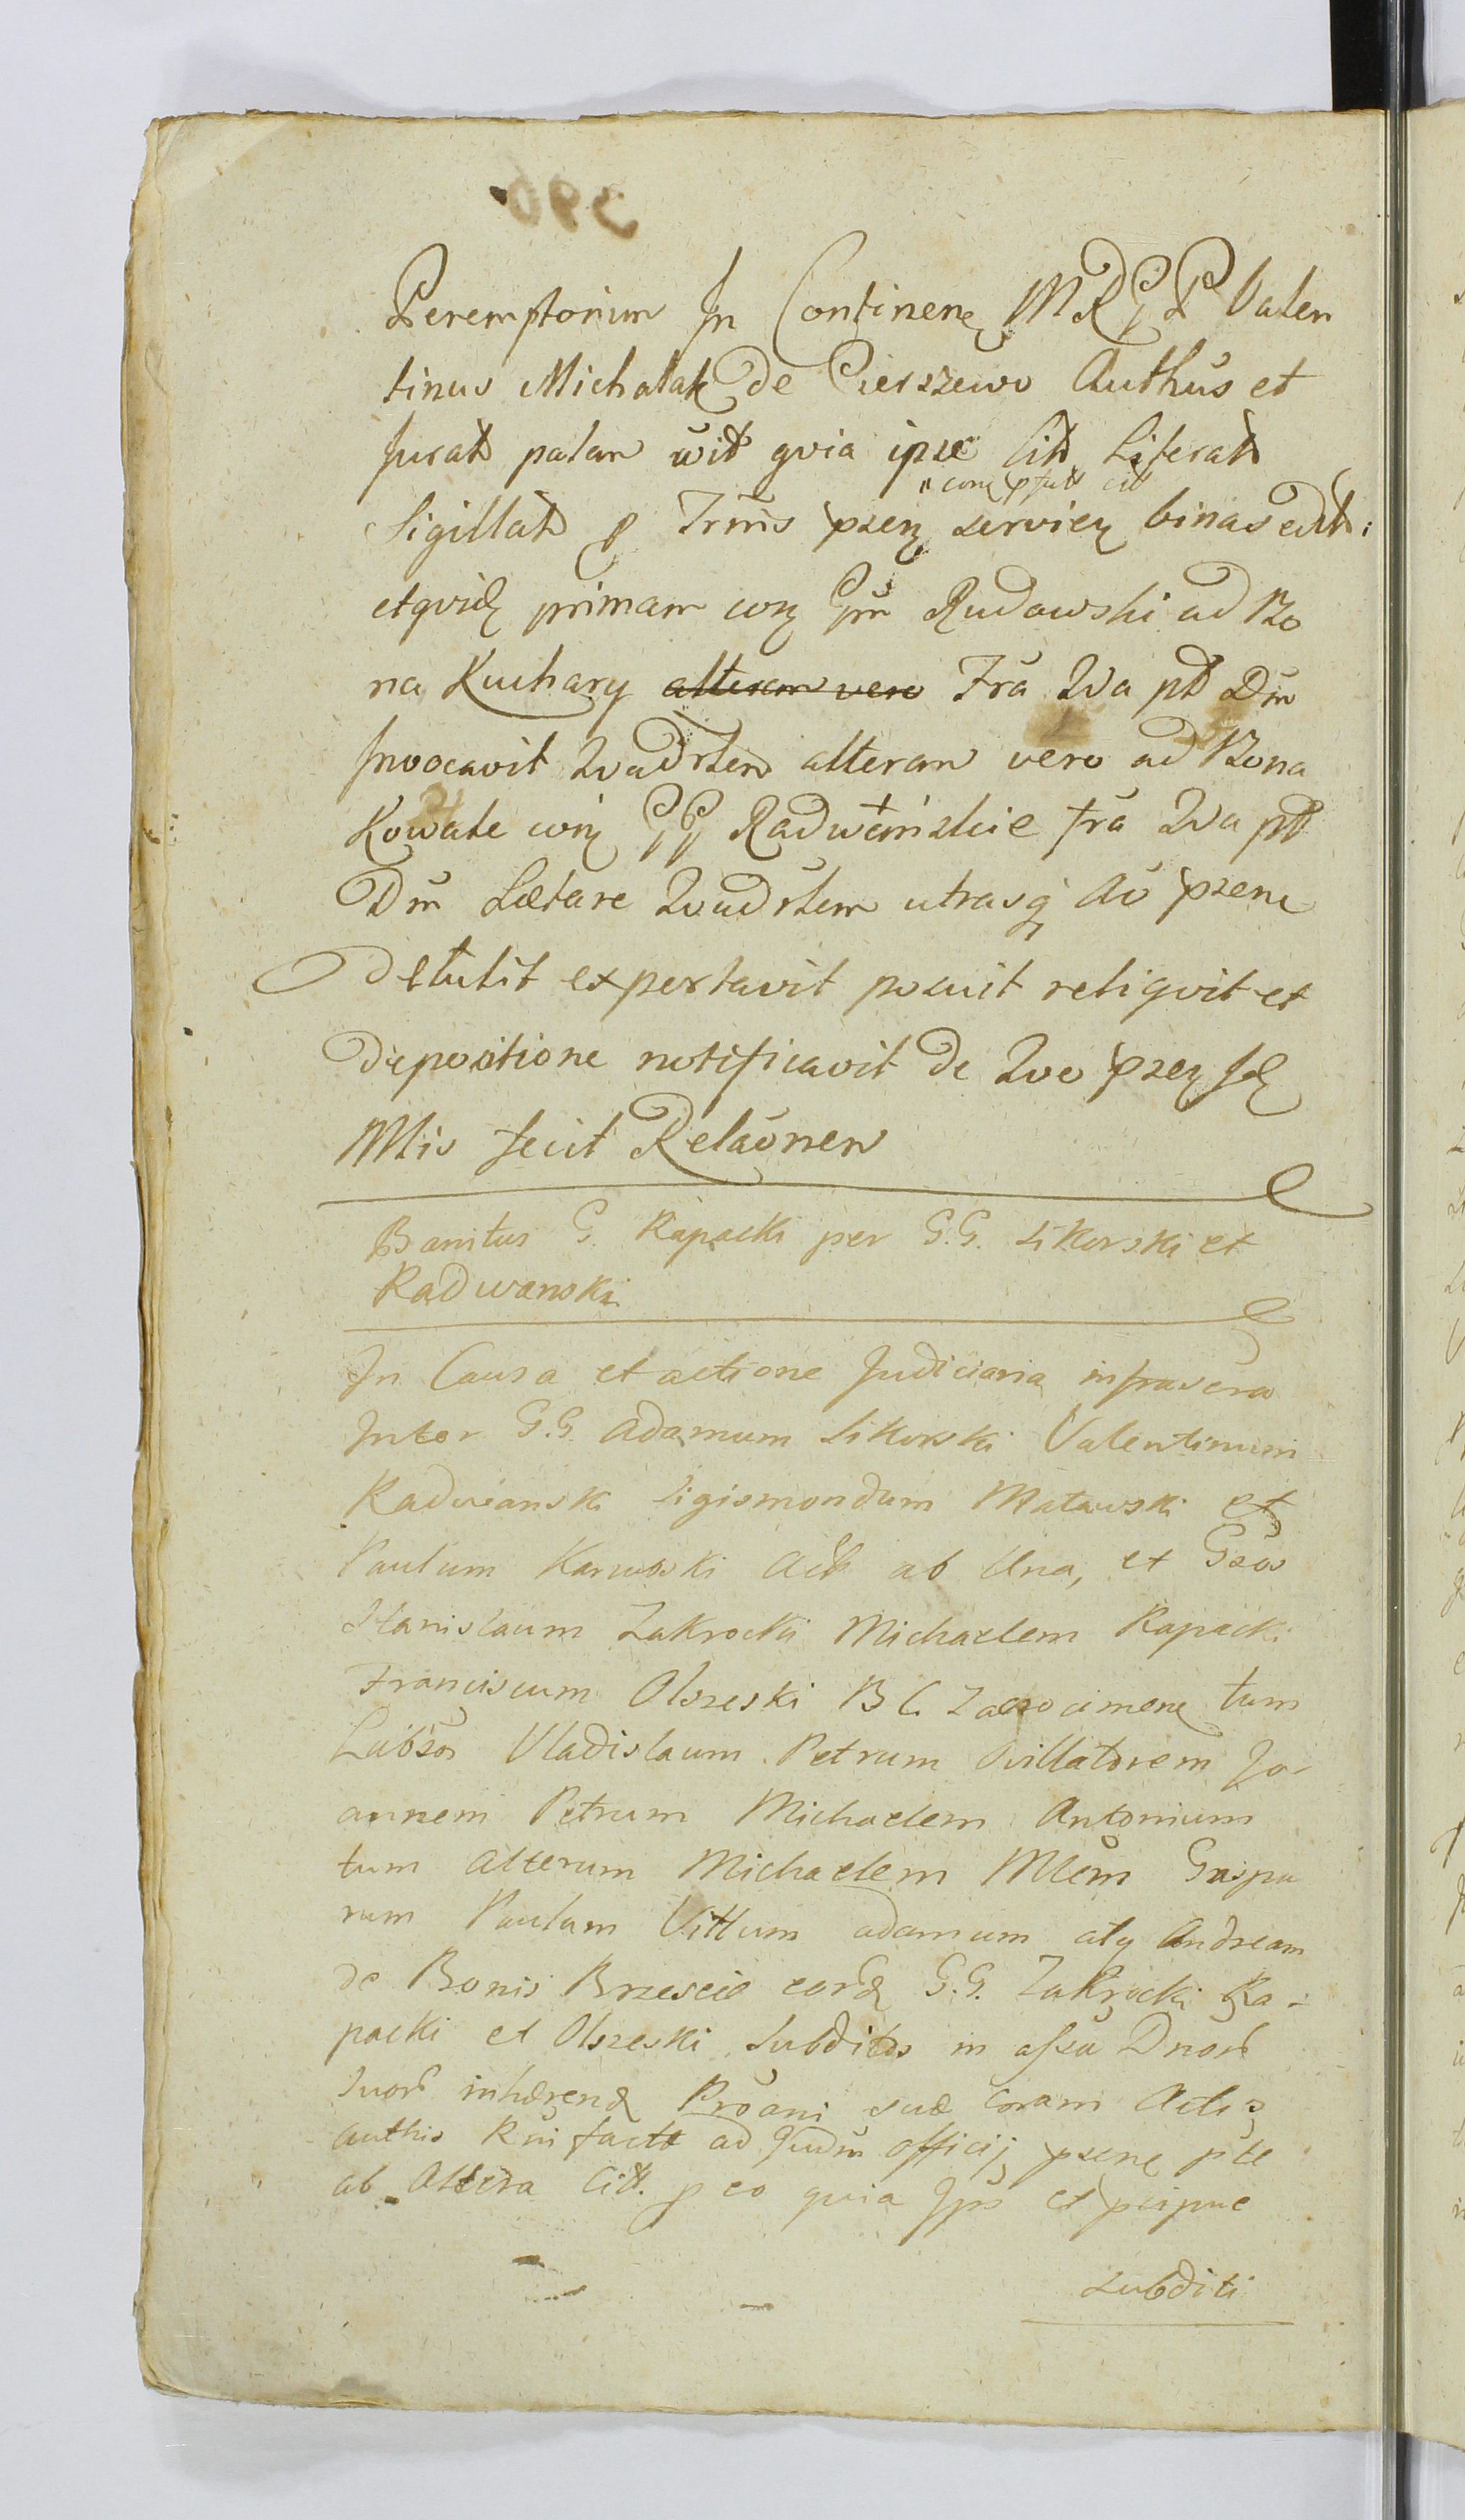 396
Peremptorium In Continen MRGP Valen
tinus Michalak de Cierszewo Authūs et
Jurat palam vit qvia ipse Cit Literat
Sigillat p Trmis psen servien binas edit:
etqvid primam con Gm Rudowski ad Bo
na Kuchary alteram vero Fra 2da pt Dm
Invocavit Quadrlem alteram vero ad Bona
Kowale con GG Radwańskie fra 2da pt
Dm Lætare Quadrlem utrasq ao psene
Detulit exportavit posuit reliqvit et
Depositione notificavit de Qvo psen
Mis fecit Relāonem
Banitus G. Rapacki per G.G. Sikorski et
Radwanski
In Causa et actione Judiciaria infrascra
Inter G.G. Adamum Sikorski Valentinum
Radwanski Sigismondum Matawski et
Paulum Karwoski Act ab Una, et Gsos
Stanislaum Zakrocki Michaelem Rapacki
Franciscum Olszeski B C Zacrocimene tum
Labsos Vladislaum Petrum Ovillatorem Jo-
annem Petrum Michaelem Antonium
tum Alterum Michaelem Mlem Gaspa
rum Paulum Vittum adamum atq Andream
de Bonis Brzescie eord G.G. Zakrocki Ra-
packi et Olszeski Subditos in assa Dnor
Suor inhærend Proani suæ coram Actis
authis Rni facto ad Judm officij psene pte
ab Altera Citt. p eo quia Ips et pcipue
Subditi